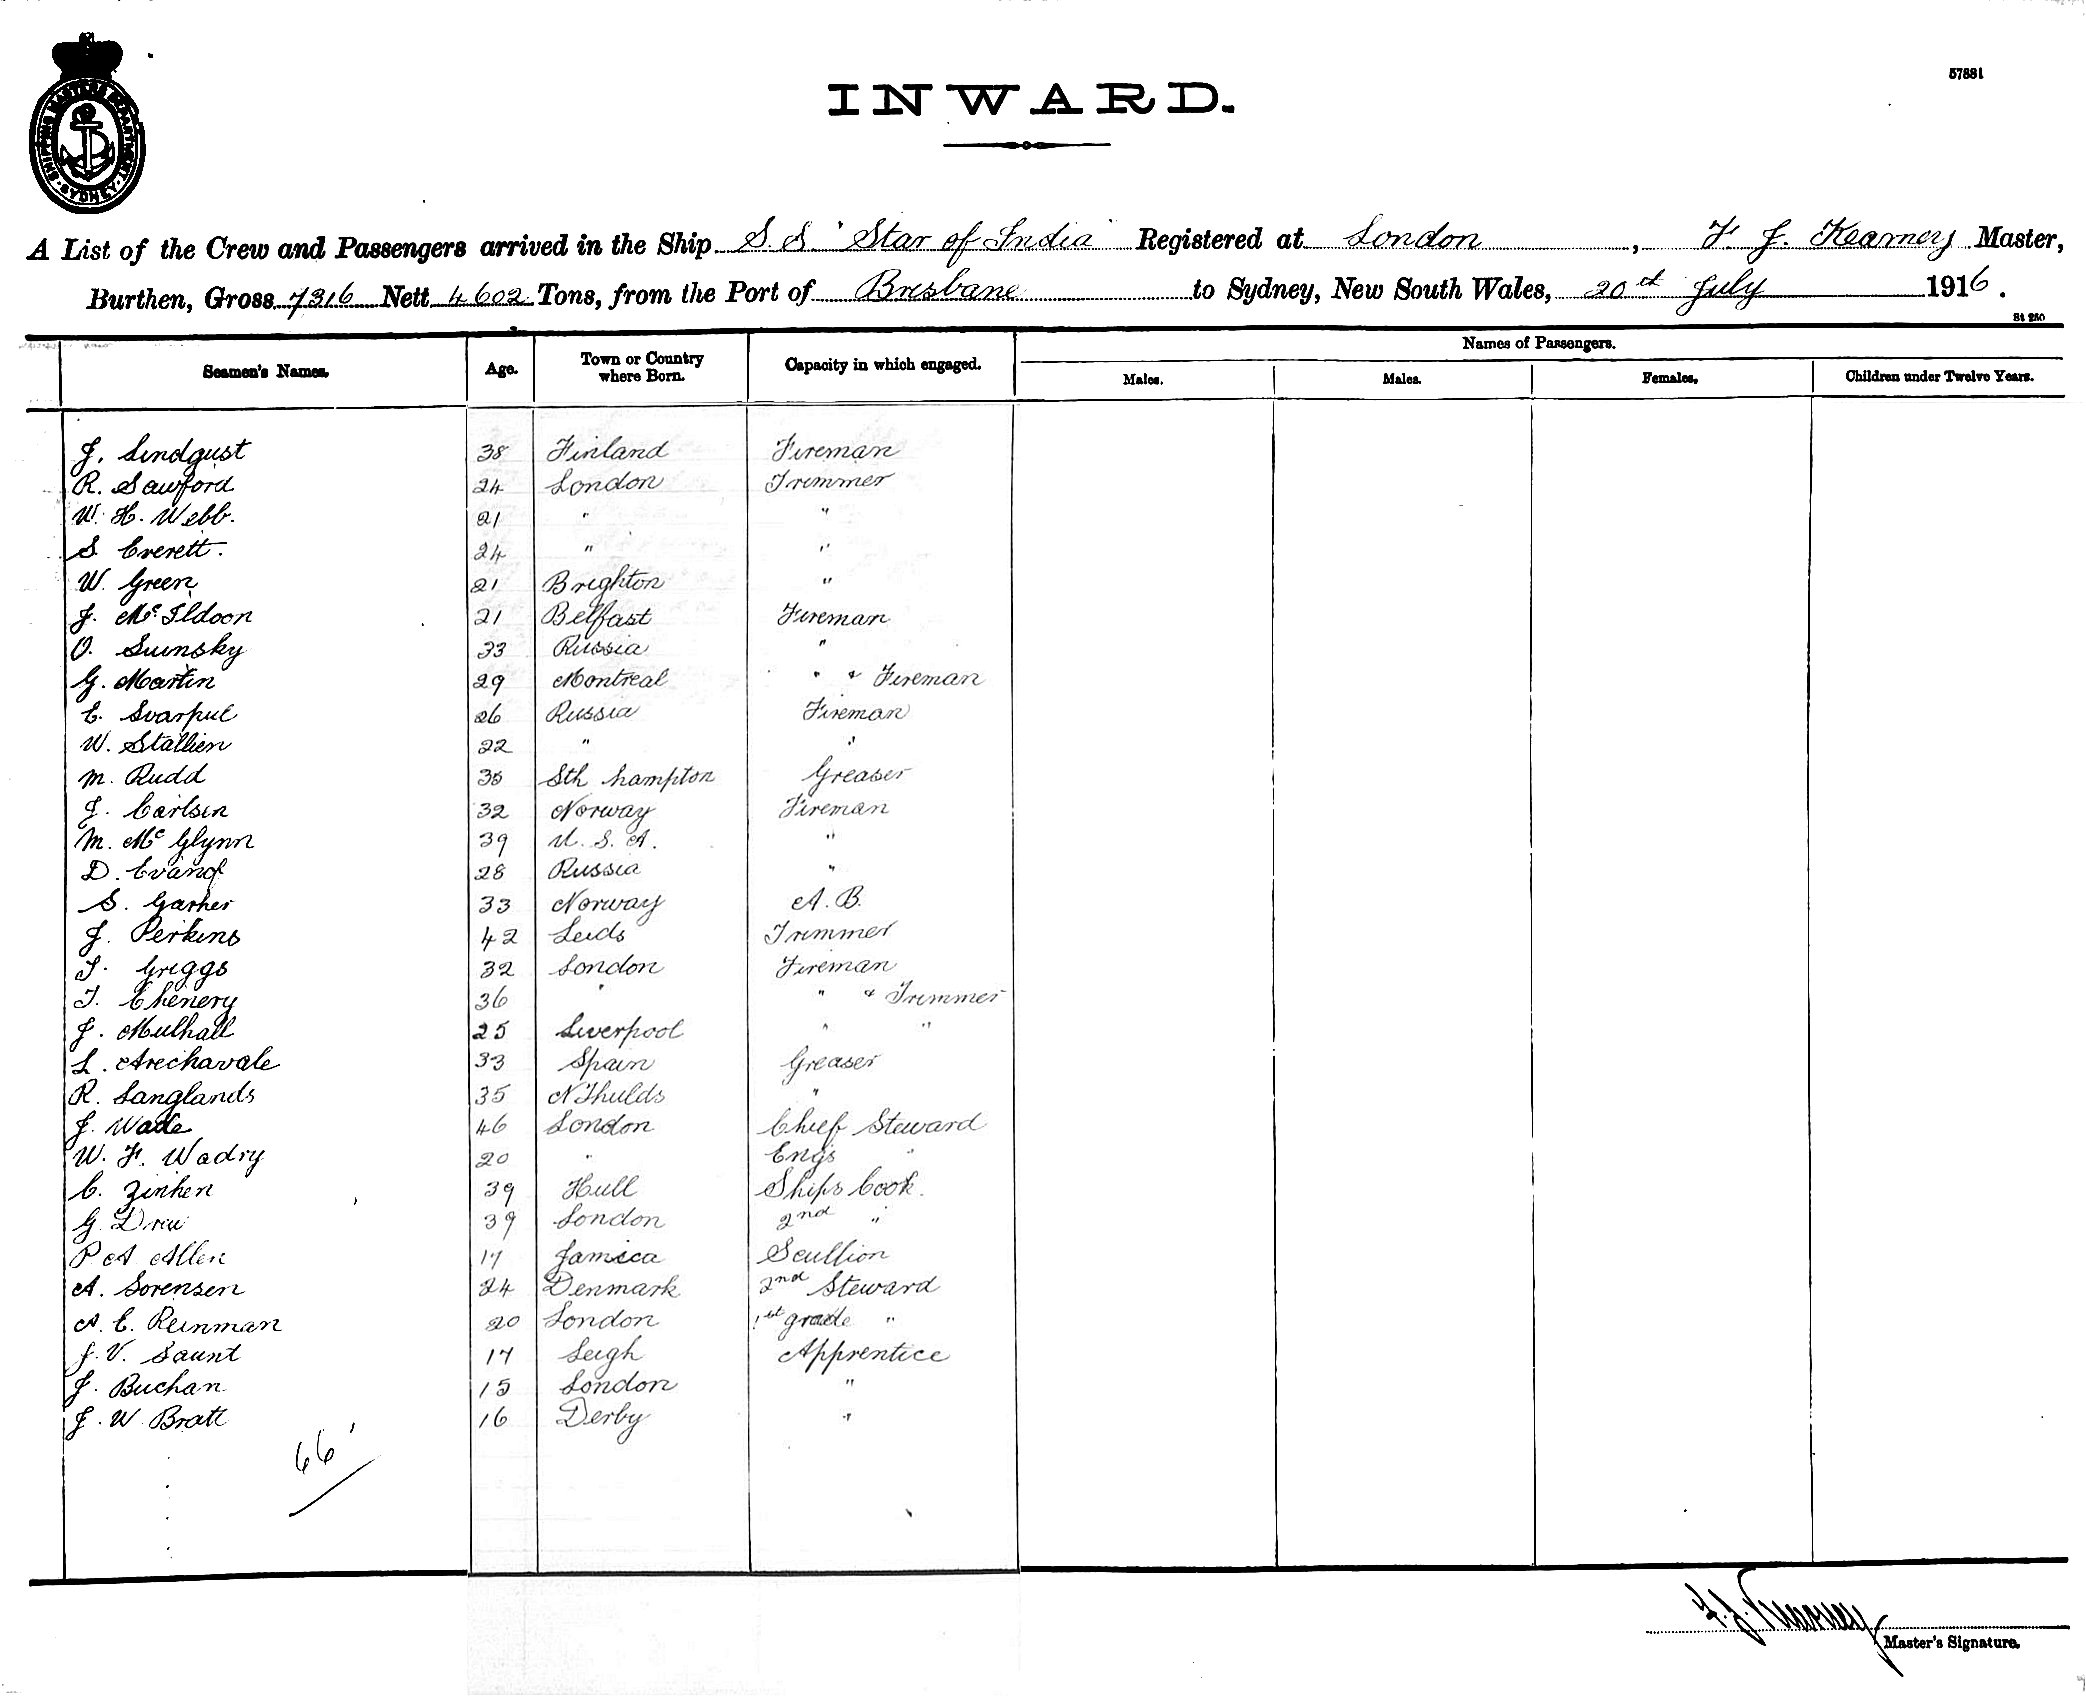 57881
SHIPPING MASTERS DEPARTMENT
SYDNEY
INWARD.
A List of the Crew and Passengers arrived in the Ship S. S. "Star of India" Registered at London, F. J. Kearney Master,
Burthen, Gross 7316 Nett 4602 Tons, from the Port of Brisbane to Sydney, New South Wales, 20th July 1916.
St 250
Seamen's Names. Age. Town or Country where Born. Capacity in which engaged. Names of Passengers.
Males. Males. Females. Children under Twelve Years.
J. Lindqust 38 Finland Fireman
R. Sawford 24 London Trimmer
W. H. Webb. 21 " "
S Everett. 24 " "
W. Green 21 Brighton "
J. McIldoon 21 Belfast Fireman
O. Suinsky 33 Russia "
G. Martin 29 Montreal " & Fireman
E. Svarpul 26 Russia Fireman
W. Stallien 22 " "
M. Rudd 35 Sth hampton Greaser
J. Carlsen 32 Norway Fireman
M. Mc Glynn 39 U. S. A. "
D. 28 Russia "
S. Garher 33 Norway A. B.
J. Perkins 42 Leeds Trimmer
T. Griggs 32 London Fireman
T. Chenery 36 " " & Trimmer
J. Mulhall 25 Liverpool " "
L. Arechavale 33 Spain Greaser
R. Langlands 35 NShields "
J. Wade 46 London Chief Steward
W. F. Wadry 20 " Engs "
C. Zinken 39 Hull Ships Cook.
G Drew 39 London 2nd "
P A Allen 17 Jamica Scullion
A. Sorensen 24 Denmark 2nd Steward
A. E. Reinman 20 London 1st grade "
J. V. Saunt 17 Leigh Apprentice
J. Buchan 15 London "
J. W Bratt 16 Derby "
66
F. J. Kearney
Master's Signature.